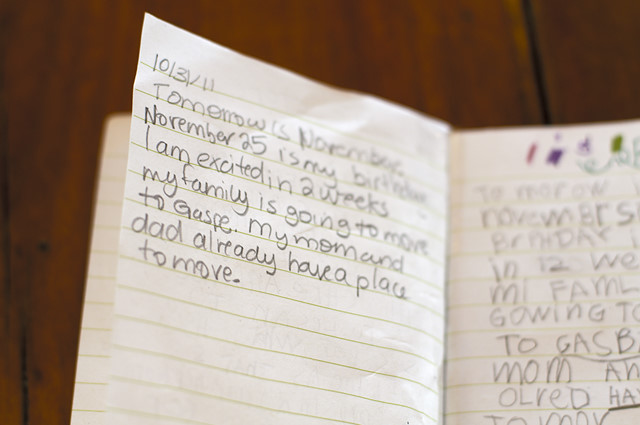 10/31/11
Tomorrow is November.
November 25 is my birthday
I am excited in 2 weeks
my family is going to move
to Gaspe. My mom and
dad already have a place
to move.
TO MOROW
NOVEMBR
BRTHDAY
in 12 WE
MI FAMIL
GOWING TO
TO GASBA
MOM AN
OLRED HA
TO MOV